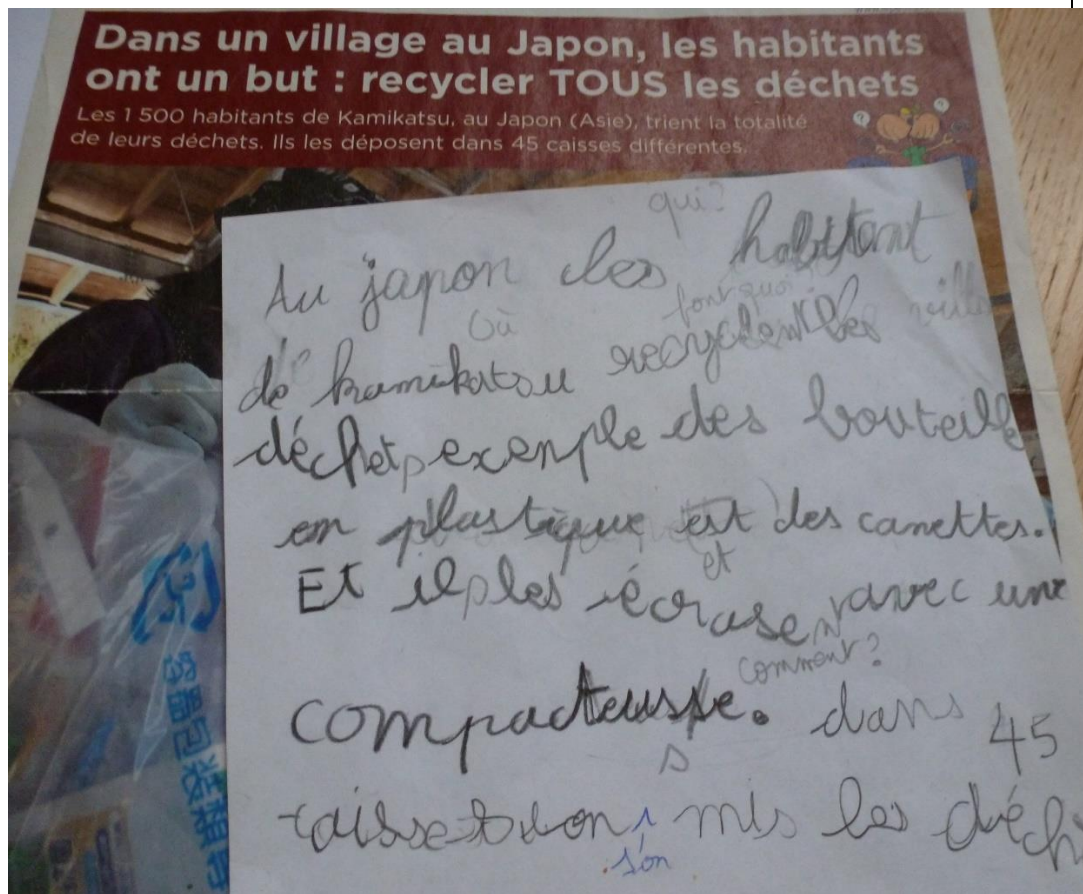 Dans un village au Japon, les habitants
ont un but : recycler TOUS les déchets
Les 1 500 habitants de Kamikatsu, au Japon (Asie), trient la totalité
de leurs déchets. Ils les déposent dans 45 caisses différentes.
qui?
Au japon les habitant
où pourquoi
de kamikatsu recyclent les
déchet, exemple des bouteille
en plastique est des canettes.
et
Et il les écrasent avec une
comment?
compacteuse. dans 45
s
caisse on mis les déch
son
容器包装類